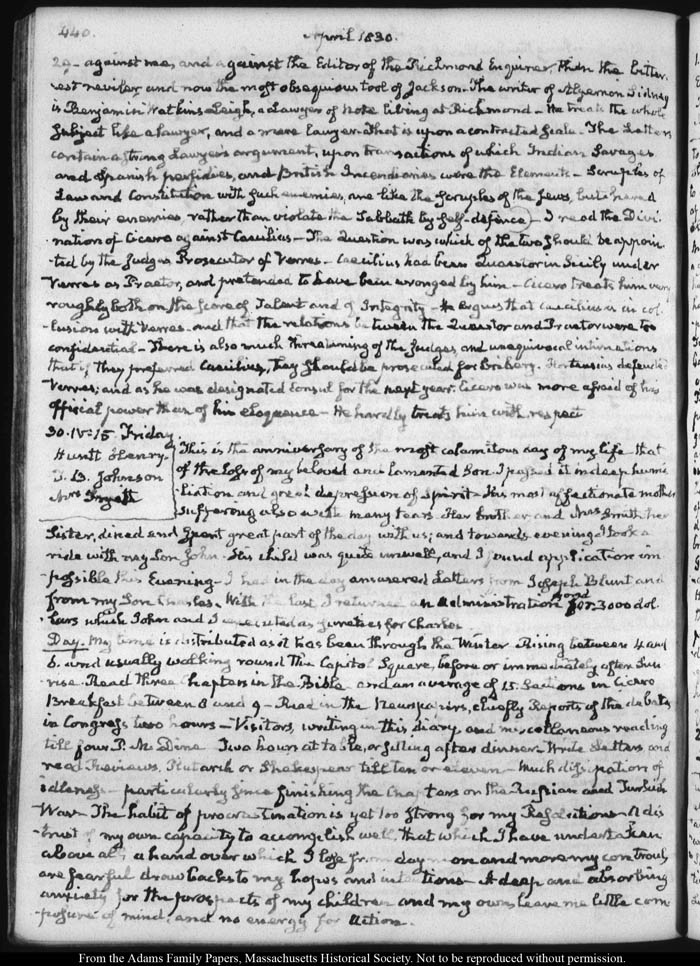 440.
April 1830.
29 - against me, and against the Editor of the Richmond Enquirer, then the bitter-
-est reviler and now the most obsequious tool of Jackson. The writer of Algernon Sidney
is Benjamin Watkins Leigh, a Lawyer of note living at Richmond - He treats the whole
subject like a Lawyer, and a mere Lawyer - That is upon a contracted scale - The Letters
contain a strong Lawyer's argument, upon transactions of which Indian Savages
and Spanish perfidies, and British Incendiaries were the Elements - Scruples of
Law and Constitution with such enemies, are like the scruples of the Jews, butchered
by their enemies, rather than violate the Sabbath by self-defence - I read the Divi-
nation of Cicero against Caecilius - The Question was which of the two should be appoin-
ted by the Judges Prosecutor of Verres - Caecilius had been Quaestor in Sicily under
Verres as Praetor, and pretended to have been wronged by him - Cicero treats him very
roughly both on the score of Talent and of Integrity - He argues that Caecilius is in col-
-lusion with Verres - and that the relations between the Quaestor and Praetor were too
confidential - There is also much threatening of the Judges, and unequivocal intimations
that if they preferred Caecilius, they should be prosecuted for Bribery. Hortensius defended
Verres; and as he was designated Consul for the next year. Cicero was more afraid of his
Official power than of his eloquence - He hardly treats him with respect
30. IV:15. Friday.
Huntt Henry.
Johnson
Mrs
This is the anniversary of the most calamitous day of my life - that
of the loss of my beloved and lamented Son. I passed it in deep humi-
-liation and great depression of Spirit - His most affectionate mother
suffering also with many tears. Her brother and Mrs Smith her
Sister, dined and spent great part of the day with us; and towards evening I took a
ride with my Son John - His child was quite unwell, and I found application im-
-possible this Evening - I had in the day answered Letters from Joseph Blunt and
from my Son Charles. With the last I returned an Administration bond for 3000 dol-
-lars which John and I executed as sureties for Charles.
Day. My time is distributed as it has been through the Winter. Rising between 4 and
6. and usually walking round the Capitol Square, before or immediately after Sun-
rise. Read three Chapters in the Bible and an average of 15. Sections in Cicero
Breakfast between 8 and 9 - Read in the Newspapers, chiefly Reports of the debates
in Congress two hours - Visitors, writing in this diary and miscellaneous reading
till four P.M. Dine. Two hours at table, or idling after dinner - Write Letters and
read Reviews, Plutarch or Shakespear till ten or eleven - Much dissipation of
idleness - particularly since finishing the Chapters on the Russian and Turkish
War - The habit of procrastination is yet too strong for my Resolutions - A dis-
-trust of my own capacity to accomplish well, that which I have undertaken
above all, a hand over which I lose from day more and more my controul,
are fearful drawbacks to my hopes and intentions - A deep and absorbing
anxiety for the prospects of my children and my own leave me little com-
-posure of mind, and no energy for action.
From the Adams Family Papers, Massachusetts Historical Society. Not to be reproduced without permission.